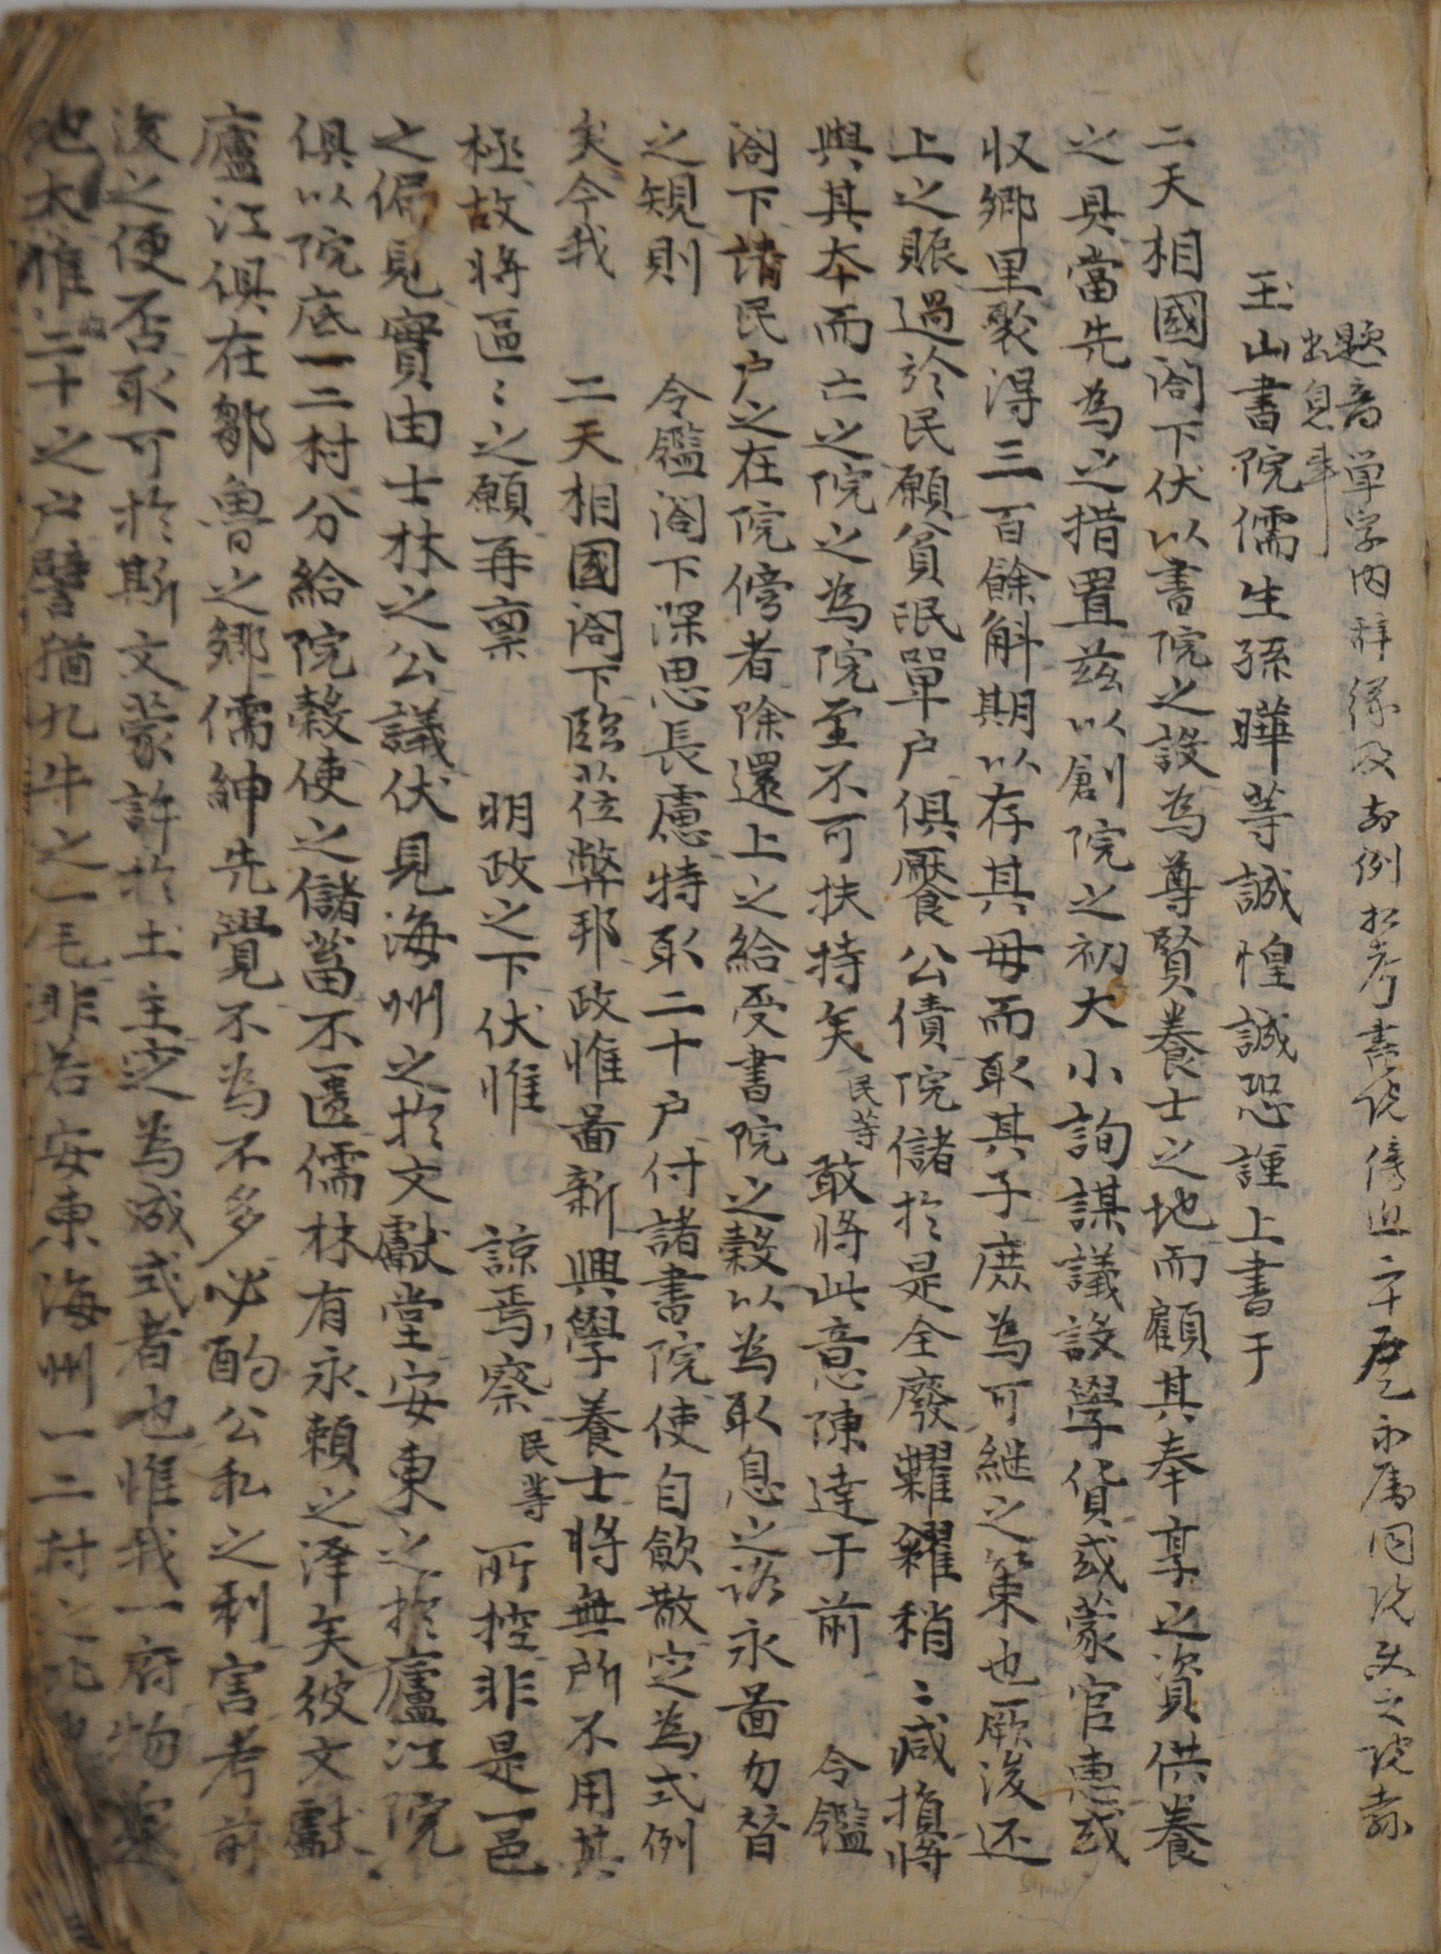 題音单字內辞緣及前例相考書院傍近二十戶永属同院
出息事
玉山書院儒生孫曄等誠惶誠恐謹上書于
二天相國閤下伏以書院之設為尊賢養士之地而顧其奉享之資供養
之具當先為之措置茲以創院之初大小詢謀議設學貨或蒙官惠或
収鄉里聚得三百餘斛期以存其母而取其子庶為可継之策也厥後还
上之賑過於民願貧氓單户俱饜公債院儲於是全廢糶糴稍〻减損將
與其本而亡之院之為院至不可扶持矣民等敢將此意陳達于前 令鑑
閤下請民户之在院傍者除還上之給受書院之穀以為取息之谘永啚勿替
之規則 令鑑閤下深思長慮特取二十户付諸書院使自斂散定為式例
矣今我 二天相國閤下臨莅弊邦政惟啚新興學養士將無所不用其
極故將區〻之願再稟 明政之下伏惟 諒焉察民等所控非是一邑
之偏見實由士林之公議伏見海州之於文獻堂安東之於廬江院
俱以院底一二村分給院穀使之儲蓄不匱儒林有永賴之澤矣彼文獻
廬江俱在鄒魯之鄉儒紳先覺不為不多必酌公私之利害考前
後之便否取可於斯文蒙許於土主定為成式者也惟我一府物衆
地大惟二十之户譬猶九牛之一毛非若安東海州一二村之比